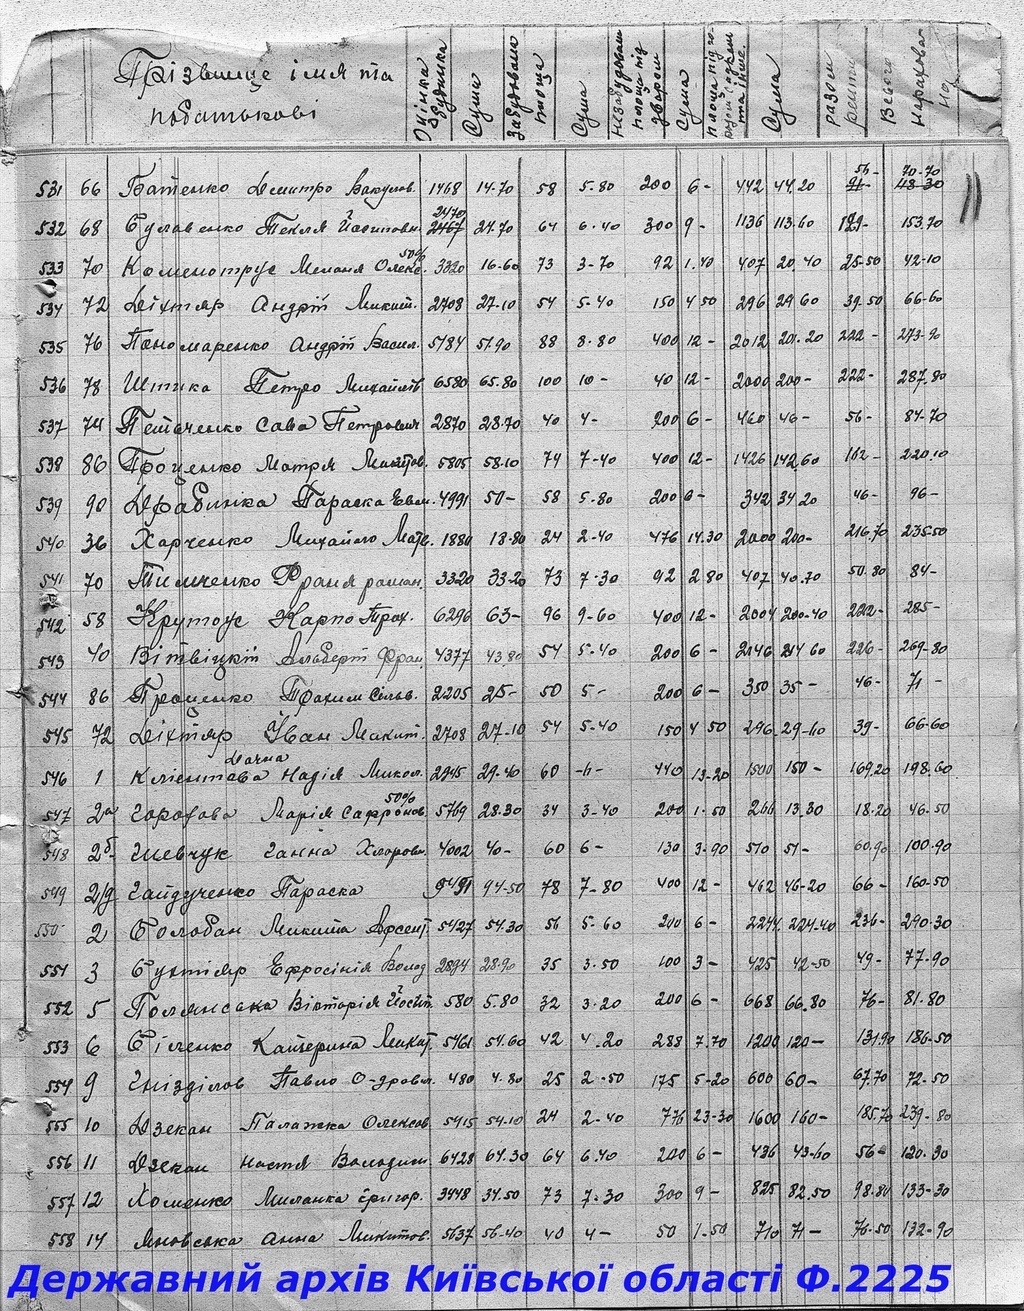 Прізвище імя та
побатькові
Оцінка будинка Сума Забудована площа Сума Незабудован площа під двором Сума площа під Сума разом ренти Всього нарахован
531 66 Батенко Дмитро Вакулов. 1468 14.70 58 5.80 200 6- 442 44.20 70-70 48-30
532 68 Текля Йосиповн. 2470 2467 24.70 64 6.40 300 9- 1136 113.60 129- 153.70
533 70 Каменотрус Меланя Олекс. 50% 3320 16-60 73 3-70 92 1.40 407 20.40 25-50 42-10
534 72 Діхтяр Андрій Микит. 2708 27-10 54 5-40 150 4 50 296 29 60 39-50 66-60
535 76 Пономаренко Андрій Васил. 5184 51.90 88 8.80 400 12- 2012 201.20 222- 273-90
536 78 Штика Петро Михайлів 6580 65.80 100 10- 40 12- 2000 200- 222- 287.80
537 74 Сава Петрович 2870 28.70 40 4- 200 6- 460 46- 56- 84-70
538 86 Проценко Мотря Микитов. 5805 58.10 74 7-40 400 12- 1426 142.60 162- 220.10
539 90 Драбинка Параска Евм. 4991 50- 58 5.80 200 6- 342 34 20 46- 96-
540 36 Харченко Михайло Матв. 1880 18-80 24 2-40 476 14.30 2000 200- 216.70 235-50
541 70 Тимченко Франя роман. 3320 33-20 73 7-30 92 2 80 407 40.70 50.80 84-
542 58 Крутоус Карпо Трох. 6296 63- 96 9-60 400 12- 2004 200-40 222- 285-
543 40 Вітвіцкій Альберт Фран. 4377 43.80 54 5-40 200 6- 2146 214 60 226- 269-80
544 86 Проценко Яхим Сильв. 2205 25- 50 5- 200 6- 350 35- 46- 71-
545 72 Діхтяр Іван Микит. 2708 27-10 54 5-40 150 4 50 296 29-60 39- 66-60
Дачна
546 1 Надія Микол. 2945 29.40 60 -"- 440 13-20 1500 150- 169.20 198.60
547 2а Горохова Марія Сафронов. 50% 5769 28.30 34 3-40 200 1-50 266 13.30 18.20 46-50
548 2б Шевчук Ганна 4002 40- 60 6- 130 3-90 510 51- 60.90 100.90
549 2/9 Гайдученко Параска 94-50 78 7-80 400 12- 462 46-20 66- 160-50
550 2 Солобан Микита Арсент. 5427 54.30 56 5-60 200 6- 2244 224-40 236- 290-30
551 3 Ефросінія Волод. 2894 28-90 35 3.50 100 3- 425 42-50 49- 77-90
552 5 Полянська Вікторія Йосип. 580 5.80 32 3.20 200 6- 668 66.80 76- 81.80
553 6 Катерина Микит. 5461 54.60 42 4.20 288 7.70 1200 120- 131.90 186-50
554 9 Гнізділов Павло О-дров. 480 4.80 25 2-50 175 5-20 600 60- 67.70 72-50
555 10 Дзекан Палажка Олексов. 5415 54-10 24 2-40 776 23-30 1600 160- 185.70 239-80
556 11 Дзекан Настя Володим 6428 64.30 64 6.40 200 6- 436 43-60 56- 120.30
557 12 Хоменко Миланка Григор. 3448 34.50 73 7-30 300 9- 825 82.50 98.80 133-30
558 14 Яновська Анна Микитов. 5637 56-40 40 4- 50 1-50 710 71- 76-50 132-90
Державний архів Київської області Ф.2225